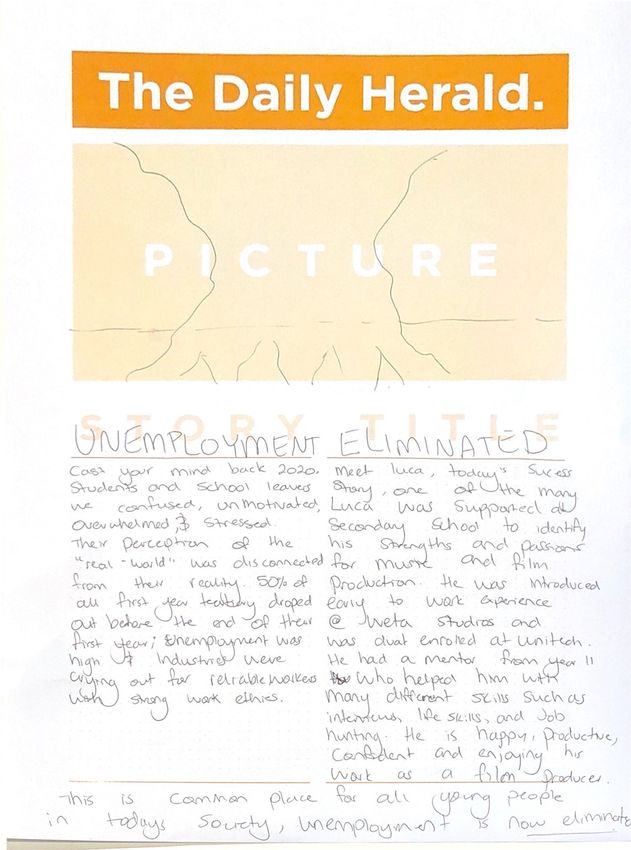 The Daily Herald.
PICTURE
STORY TITLE
UNEMPLOYMENT ELIMINATED
Cast your mind back 2020.
Students and School leavers
we confused, unmotivated,
overwhelmed, & Stressed.
Their Perception of the
"real-world" was disconnected
from their reality. 50% of
all first year droped
out before the end of their
first year; Unemployment was
high & Industries were
crying out for reliable workers
with strong work ethics.
Meet Luca, today's Sucess
Story, one of the many
Luca was Supported at
Secondary School to identify
his Strengths and passions
for music and film
Production. He was introduced
early to work experience
@ Weta Studios and
was dual enrolled at unitech.
He had a mentor from year 11
who helped him with
many different skills such as
interviews, life skills, and Job
hunting. He is happy, productive,
Confident and enjoying his
work as a film Producer.
This is Common place for all young people
in todays Society, unemployment is now eliminate